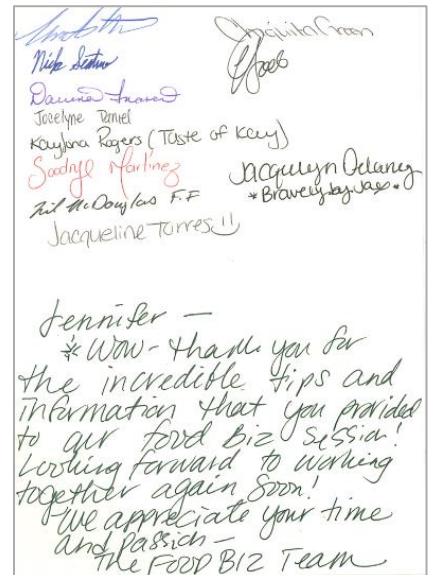 Nick
Jocelyne Daniel
Kaylona Rogers (Taste of Kay)
Martinez
Jacquelyn Delaney
*Bravely by Jax*
Jacqueline Torres
Jennifer —
* Wow - thank you for
the incredible tips and
information that you provided
to our food Biz session!
Looking forward to working
together again soon!
We appreciate your time
and passion —
The FOOD BIZ Team